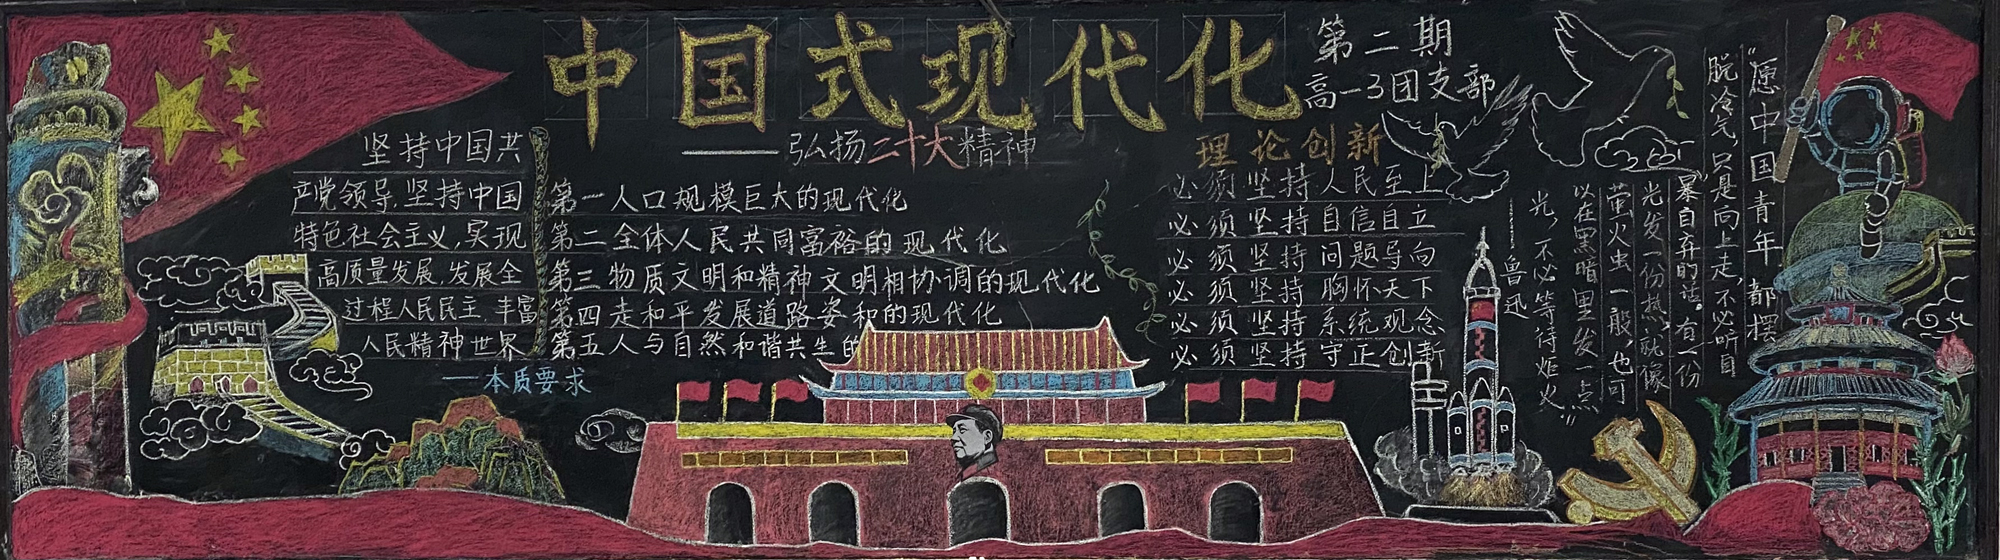 中国式现代化
第二期
高一3团支部
——弘扬二十大精神
坚持中国共
产党领导,坚持中国
特色社会主义,实现
高质量发展,发展全
过程人民民主,丰富
人民精神世界
——本质要求
第一人口规模巨大的现代化
第二全体人民共同富裕的现代化
第三物质文明和精神文明相协调的现代化
第四走和平发展道路姿和的现代化
第五人与自然和谐共生的
理论创新
必须坚持人民至上
必须坚持自信自立
必须坚持问题导向
必须坚持胸怀天下
必须坚持系统观念
必须坚持守正创新
“愿中国青年都摆
脱冷气,只是向上走,不必听自
暴自弃的话。有一份
光发一份热,就像
萤火虫一般,也可
以在黑暗里发一点
光,不必等待炬火”
——鲁迅